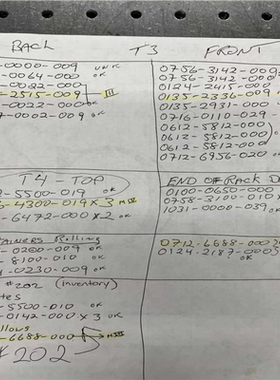 BACK T3 FRONT
-0000-009 UNK
-0064-000 OK
-0082-000
-2515-009 III
-0022-000 OK
-0002-009
0756-3142-009
0756-3142-000
0124-2415-009
0135-2336-009
0135-2931-000
0716-0110-029
0612-5812-000
0612-5812-000
0712-6956-020
T4 - TOP
-5500-019 OK
-4300-019 x 3
-6472-000 x 2 OK
END OF RACK
0100-0650-000
0758-3100-010
1031-0000-039
TAINERS Rolling
-0260-009 OK
-8100-010 OK
-0230-009 OK
0712-6688-000
0124-2187-000
#202 (Inventory)
-5500-010 OK
-0142-000 x 3 OK
-6688-000
#202